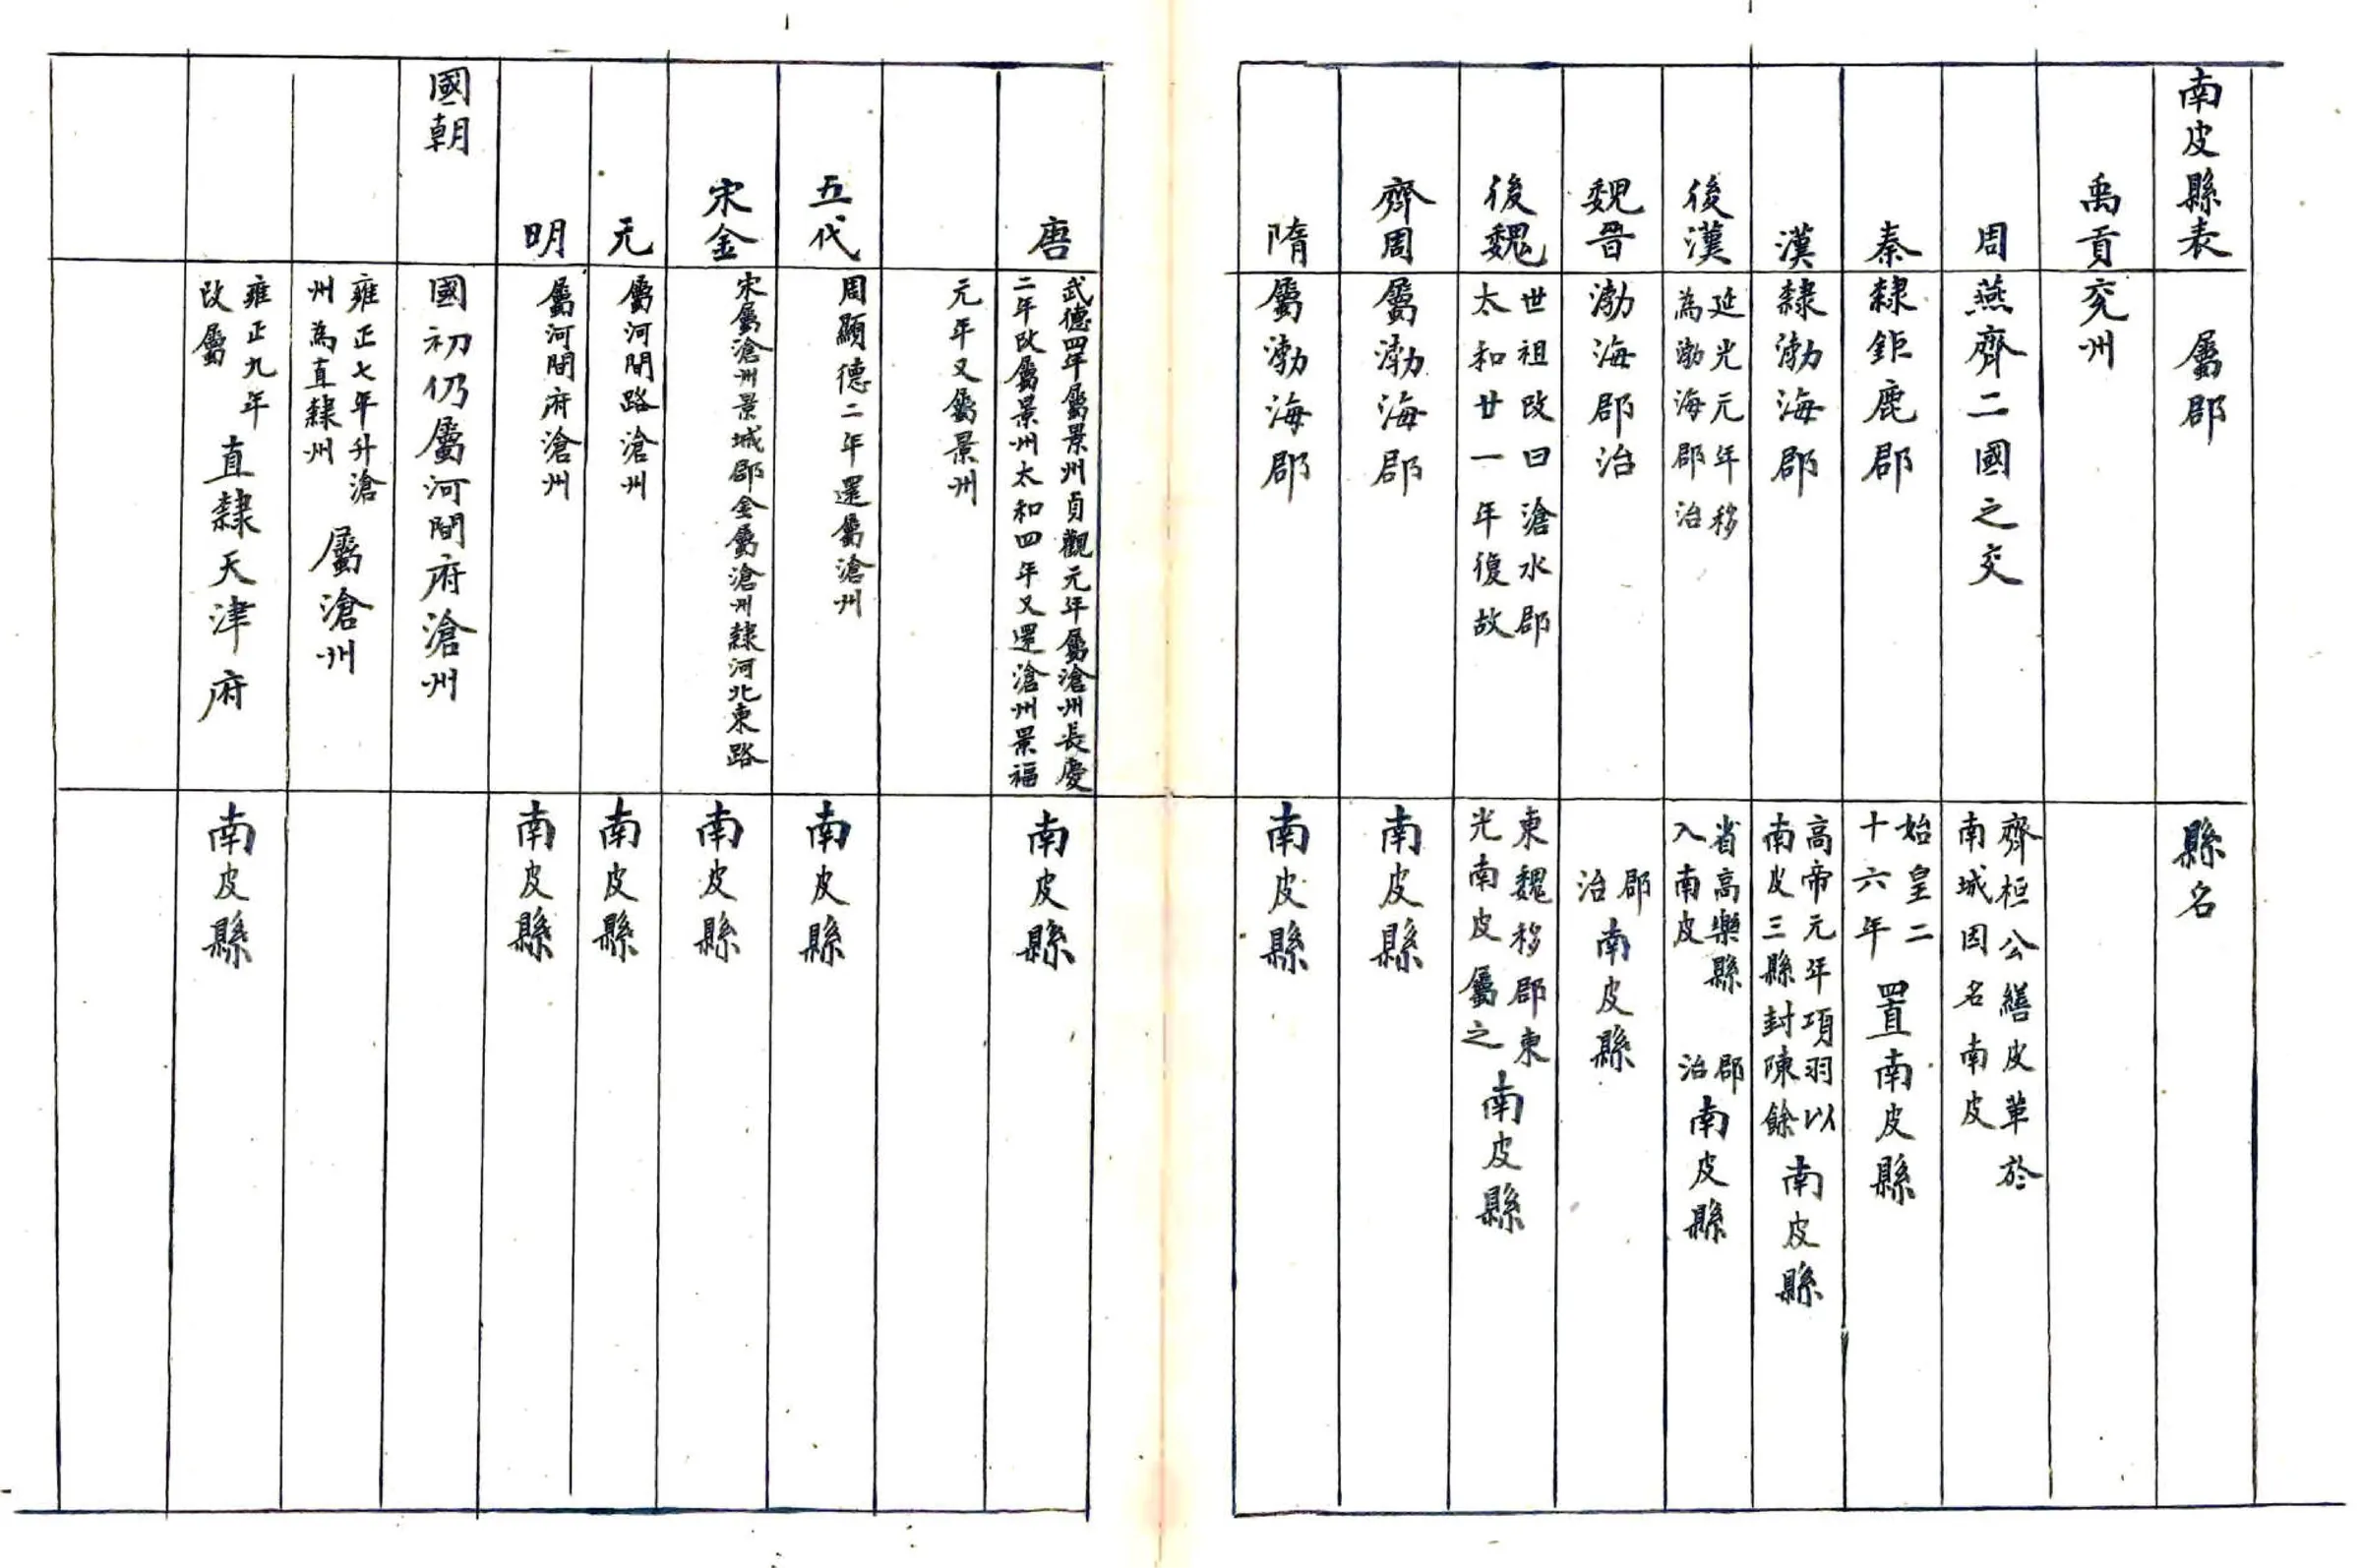 南皮縣表
屬郡
縣名
禹貢
兖州
周
燕齊二國之交
齊桓公繕皮革於
南城因名南皮
秦
隸鉅鹿郡
始皇二
十六年
置南皮縣
漢
隸渤海郡
高帝元年項羽以
南皮三縣封陳餘
南皮縣
後漢
延光元年移
為渤海郡治
省高樂縣
入南皮
郡
治
南皮縣
魏晉
渤海郡治
郡
治
南皮縣
後魏
世祖改曰滄水郡
太和廿一年復故
東魏移郡東
光南皮屬之
南皮縣
齊周
屬渤海郡
南皮縣
隋
屬渤海郡
南皮縣
唐
武德四年屬景州貞觀元年屬滄州長慶
二年改屬景州太和四年又還滄州景福
元年又屬景州
南皮縣
五代
周顯德二年還屬滄州
南皮縣
宋金
宋屬滄州景城郡金屬滄州隸河北東路
南皮縣
元
屬河間路滄州
南皮縣
明
屬河間府滄州
南皮縣
國朝
國初仍屬河間府滄州
雍正七年升滄
州為直隸州
屬滄州
雍正九年
改屬
直隸天津府
南皮縣